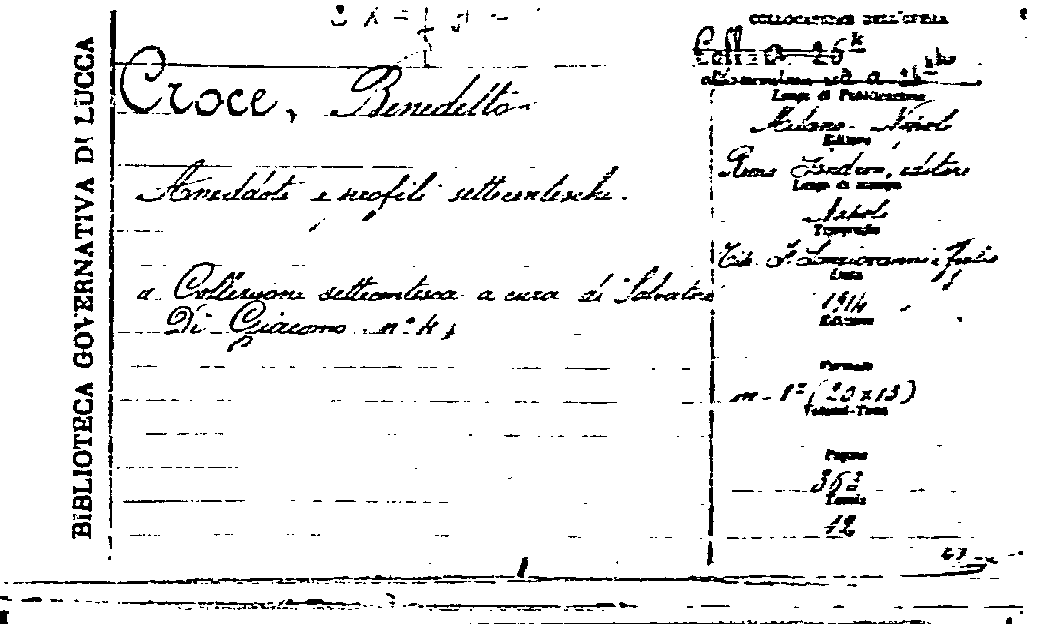 BIBLIOTECA GOVERNATIVA DI LUCCA
Croce, Benedetto
Aneddoti e profili settecenteschi.
a Collezione settecentesca a cura di Salvatore
Di Giacomo n° 4,
COLLOCAZIONE DELL'OPERA
Coll.
Luogo di Pubblicazione
Milano - Napoli
Editore
Remo Sandron, editore
Luogo di stampa
Napoli
Tipografia
Tip. F. Lanciano e Figlio
Data
1914
Edizione
Formato
in - 8° (20 x 13)
Volumi-Tomi
Pagine
363
Tavole
12